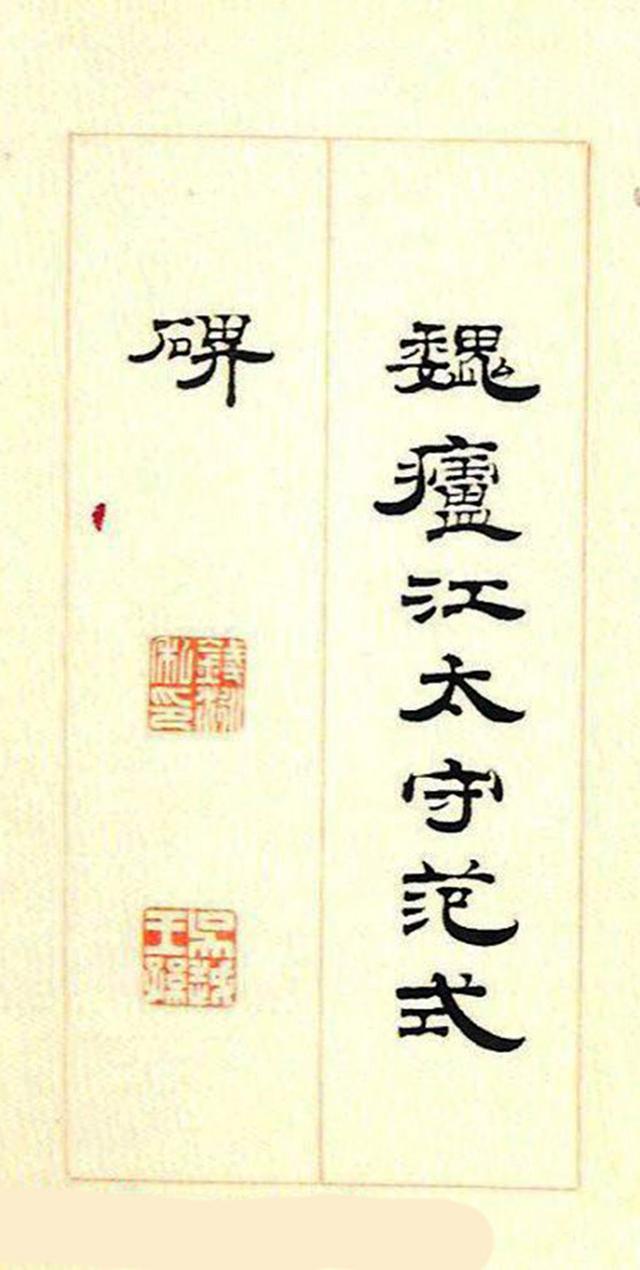 魏廬江太守范式
碑